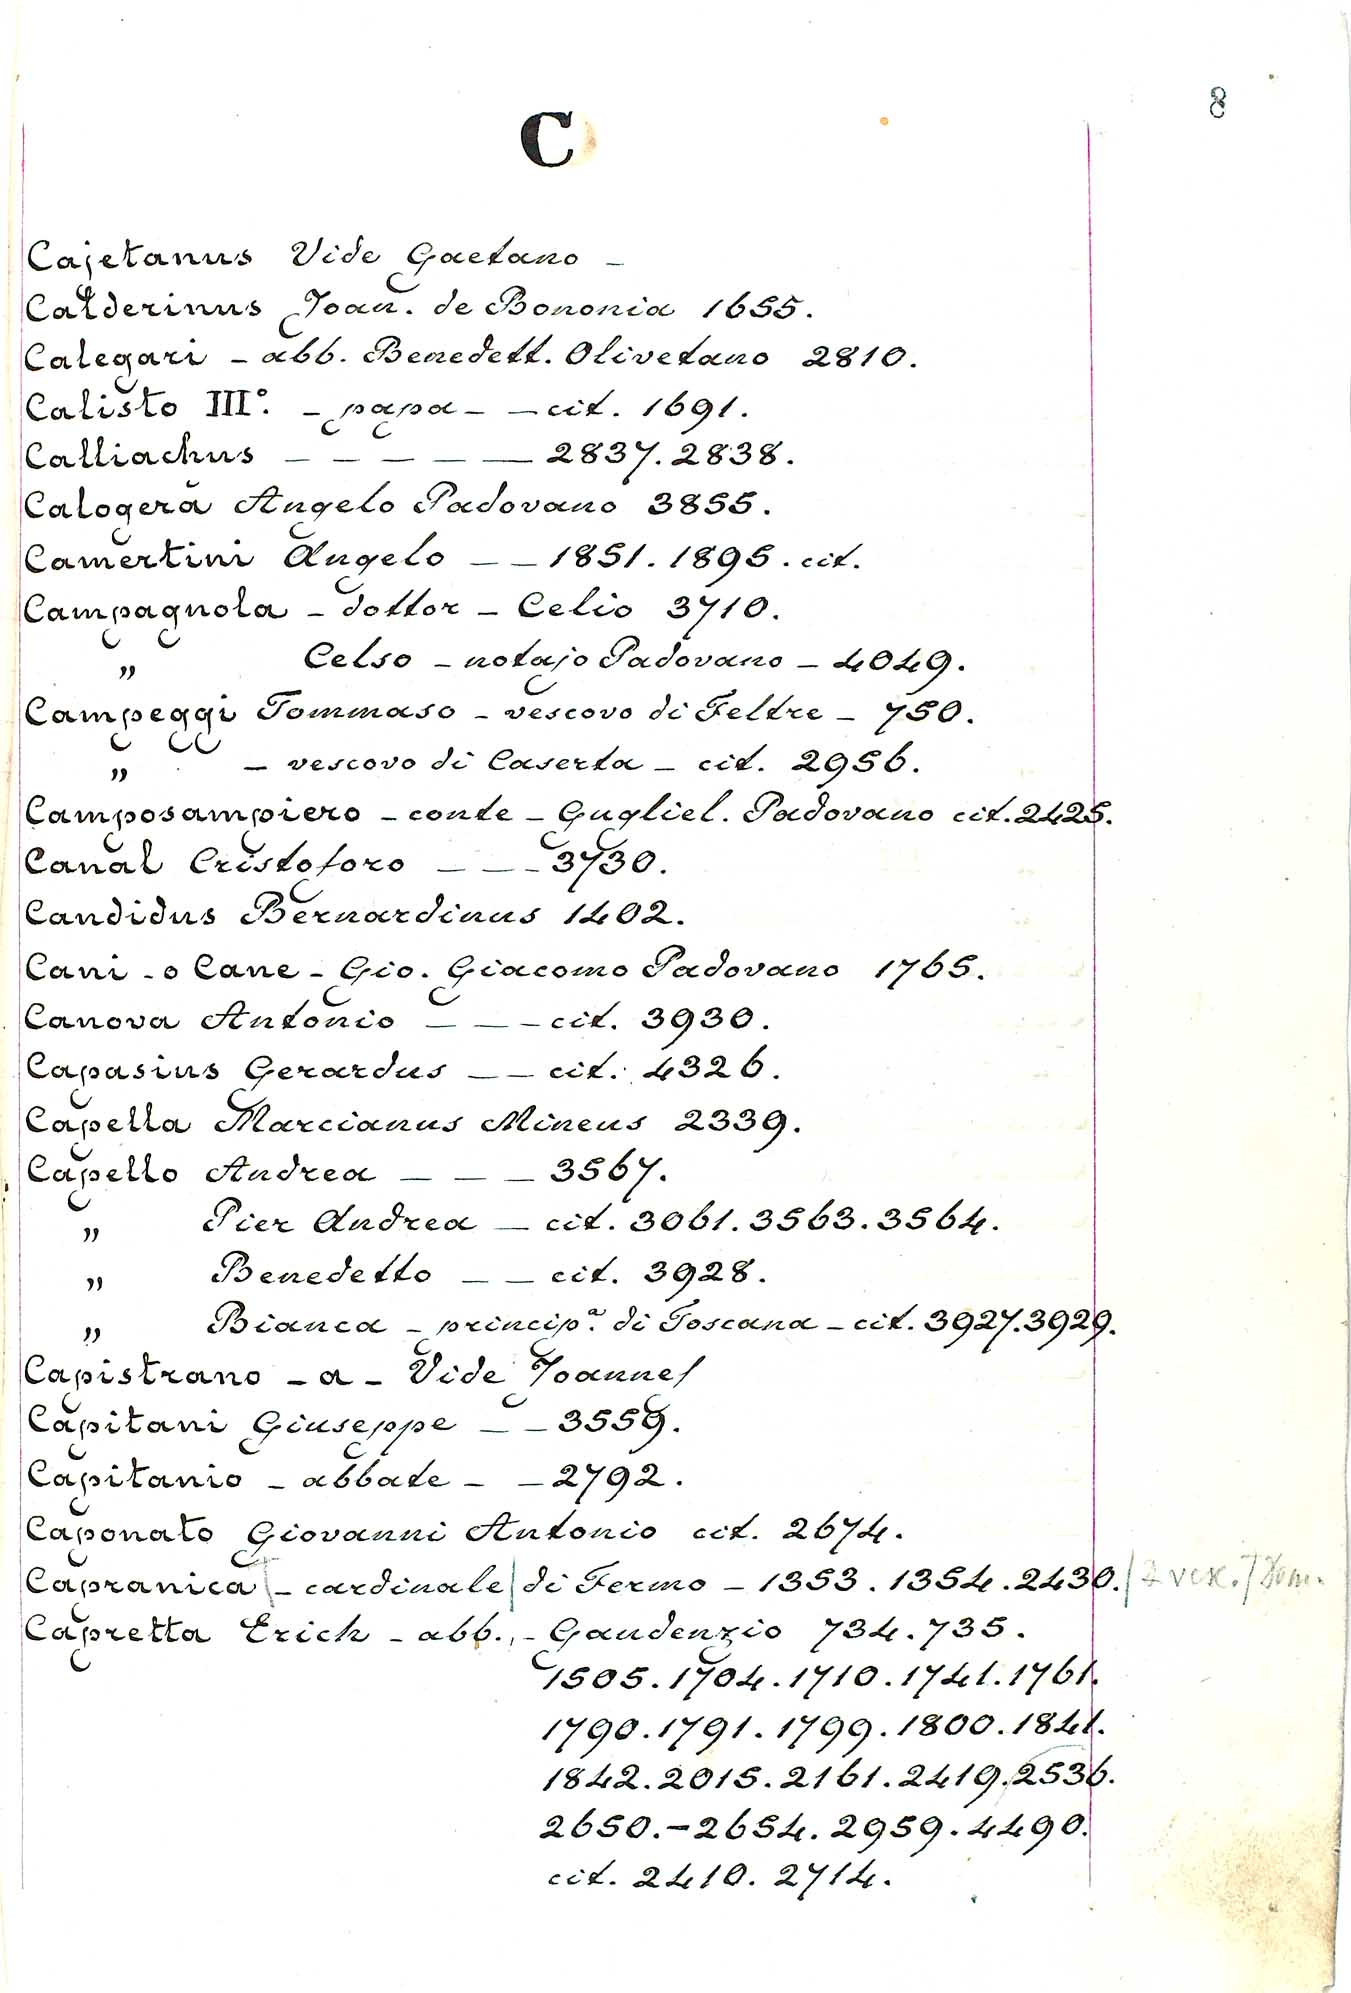 8
C
Cajetanus Vide Gaetano –
Calderinus Joan. de Bononia 1655.
Calegari – abb. Benedett. Olivetano 2810.
Calisto III°. – papa – – cit. 1691.
Calliachus – – – – – – 2837. 2838.
Calogerà Angelo Padovano 3855.
Camertini Angelo – – 1851. 1895. cit.
Campagnola – dottor – Celio 3710.
„ Celso – notajo Padovano – 4049.
Campeggi Tommaso – vescovo di Feltre – 750.
„ – vescovo di Caserta – cit. 2956.
Camposampiero – conte – Gugliel. Padovano cit. 2425.
Canal Cristoforo – – – 3730.
Candidus Bernardinus 1402.
Cani – o Cane – Gio. Giacomo Padovano 1765.
Canova Antonio – – – cit. 3930.
Capasius Gerardus – – cit. 4326.
Capella Marcianus Mineus 2339.
Capello Andrea – – – 3567.
„ Pier Andrea – cit. 3061. 3563. 3564.
„ Benedetto – – cit. 3928.
„ Bianca – princip.ª di Toscana – cit. 3927. 3929.
Capistrano – a – Vide Joannes
Capitani Giuseppe – – 3559.
Capitanio – abbate – – 2792.
Caponato Giovanni Antonio cit. 2674.
Capranica – cardinale di Fermo – 1353. 1354. 2430. / Dom.
Capretta Erich – abb. – Gaudenzio 734. 735.
1505. 1704. 1710. 1741. 1761.
1790. 1791. 1799. 1800. 1841.
1842. 2015. 2161. 2419. 2536.
2650. – 2654. 2959. 4490.
cit. 2410. 2714.